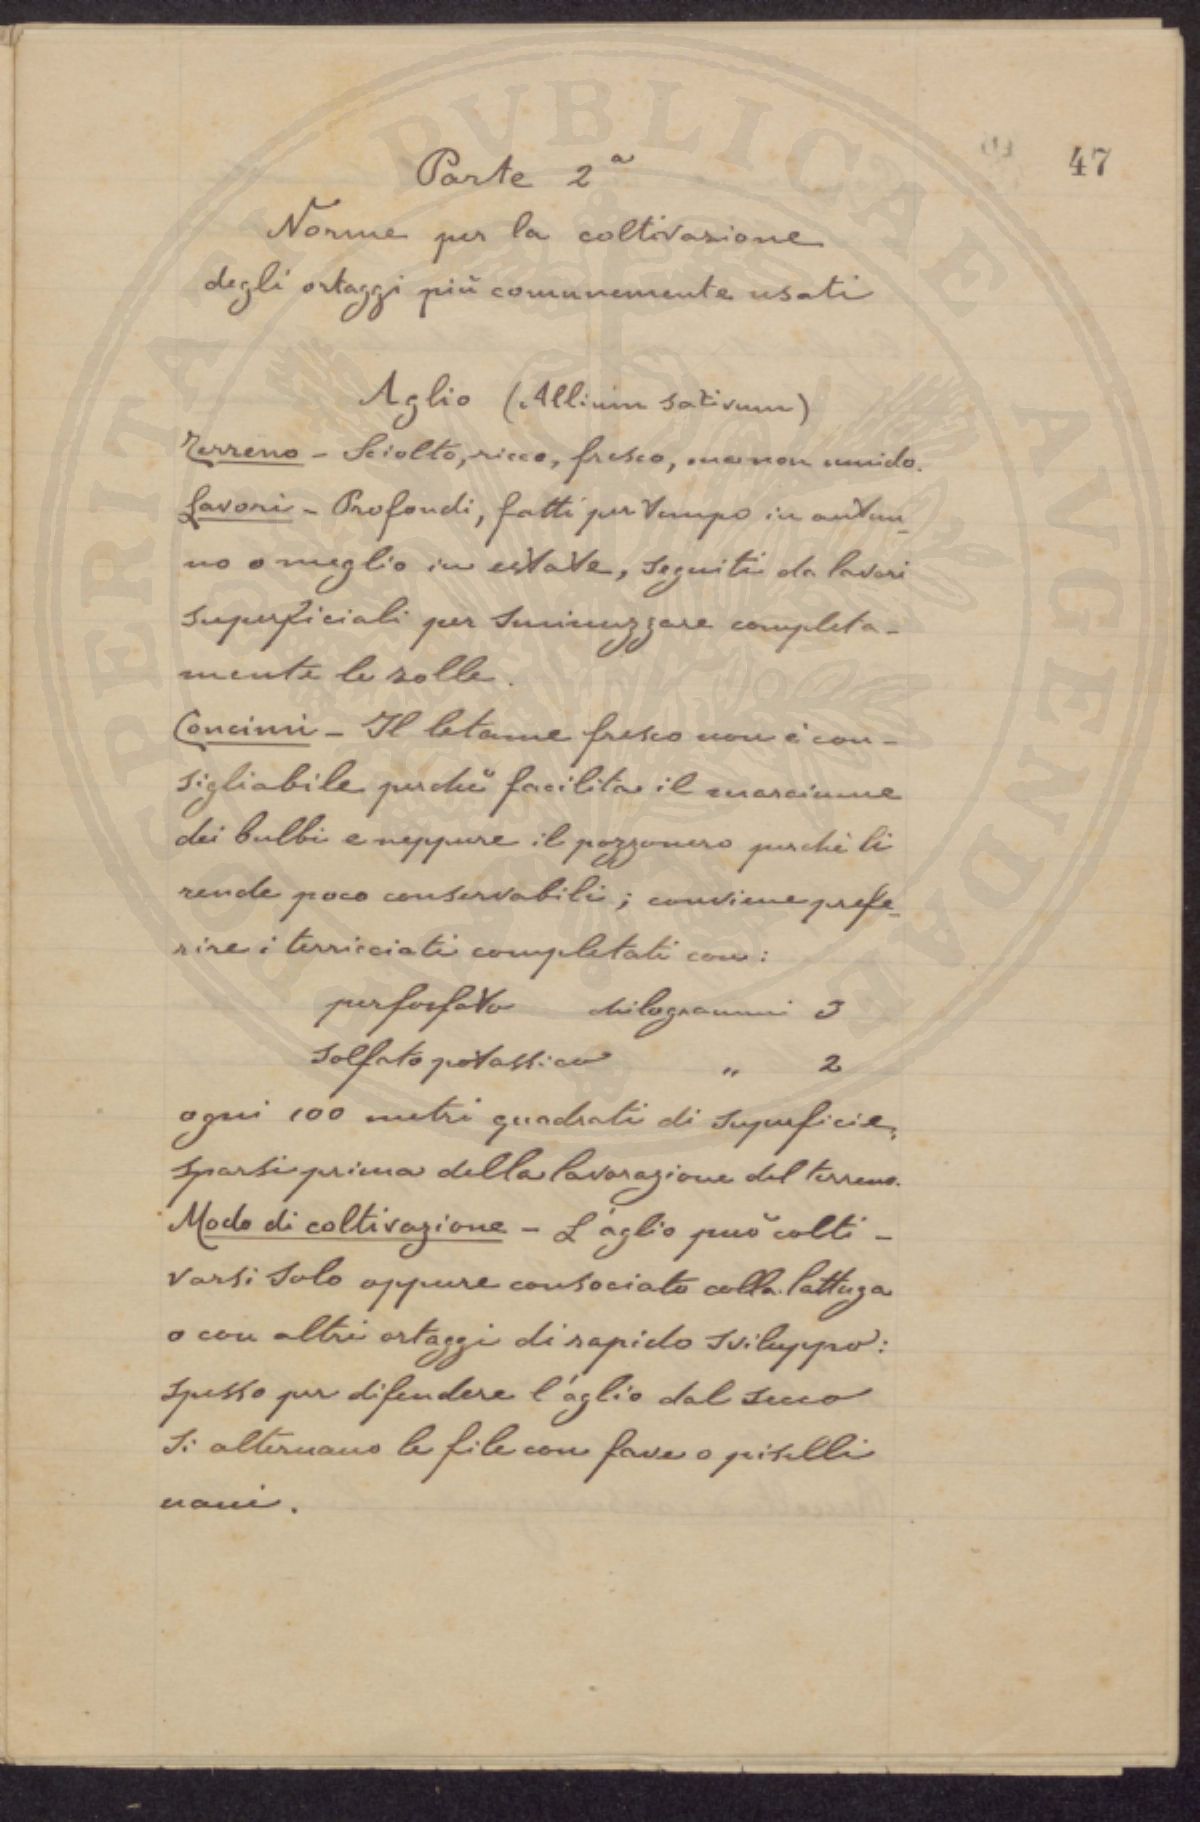 47
Parte 2ª
Norme per la coltivazione
degli ortaggi più comunemente usati
Aglio (Allium sativum)
Terreno - Sciolto, ricco, fresco, ma non umido.
Lavori - Profondi, fatti per tempo in autun-
no o meglio in estate, seguiti da lavori
superficiali per sminuzzare completa-
mente le zolle.
Concimi - Il letame fresco non è con-
sigliabile perchè facilita il marciume
dei bulbi e neppure il pozzonero perchè li
rende poco conservabili; conviene prefe-
rire i terricciati completati con:
perfosfato chilogrammi 3
solfato potassico " 2
ogni 100 metri quadrati di superficie,
sparsi prima della lavorazione del terreno.
Modo di coltivazione - L'aglio può colti-
varsi solo oppure consociato colla lattuga
o con altri ortaggi di rapido sviluppo:
spesso per difendere l'aglio dal secco
si alternano le file con fave o piselli
nani.
PERITAE PVBLICAE AVGENDAE